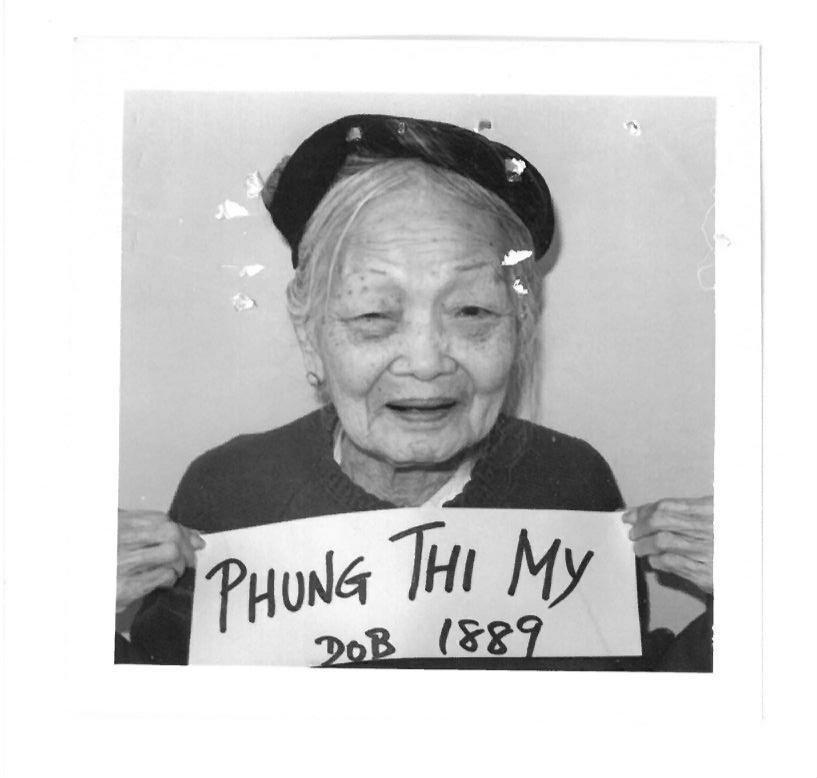 PHUNG THI MY
DOB 1889